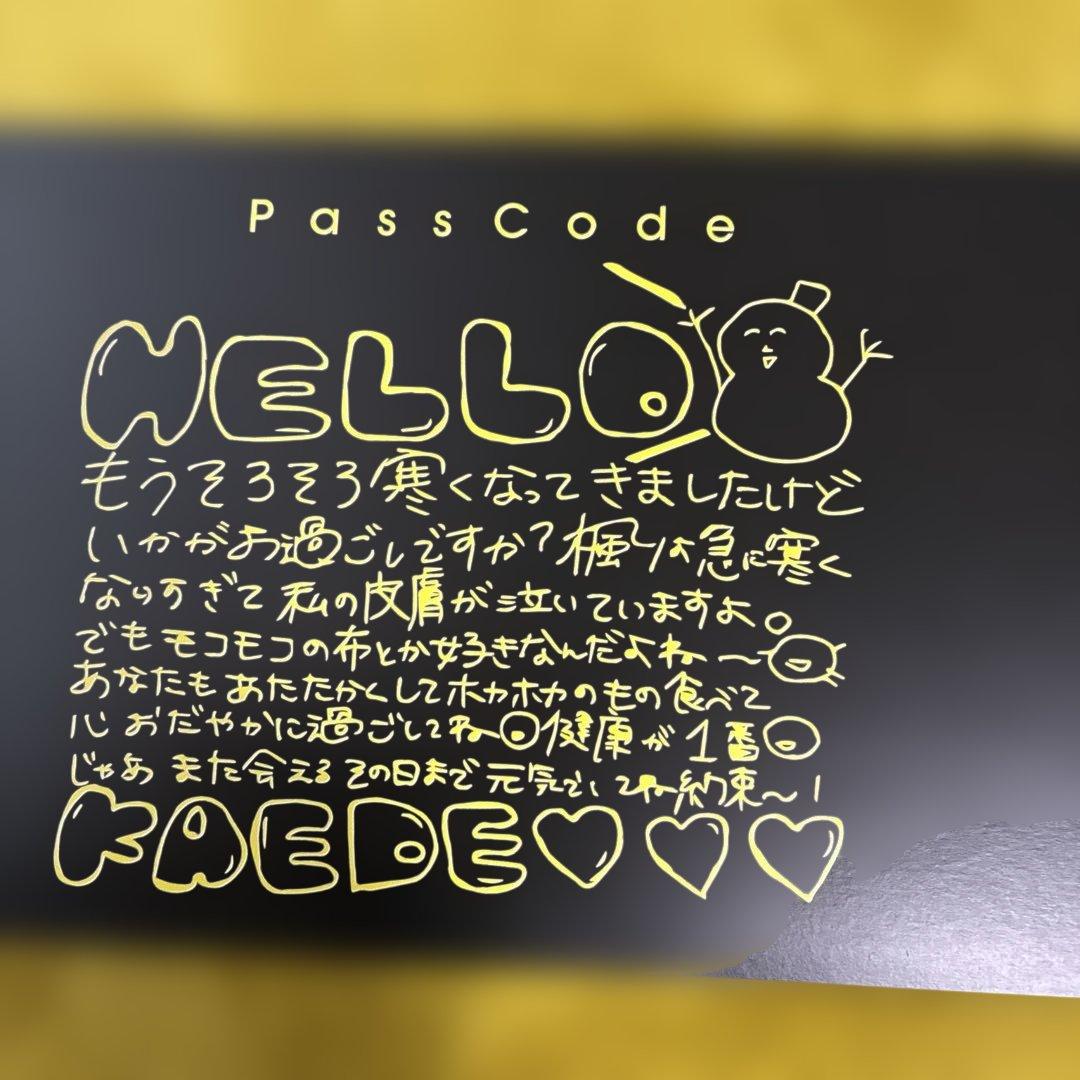 PassCode
HELLO
もうそろそろ寒くなってきましたけど
いかがお過ごしですか?楓は急に寒く
なりすぎて私の皮膚が泣いていますよ。
でもモコモコの布とか好きなんだよね〜
あなたもあたたかくしてホカホカのもの食べて
心おだやかに過ごしてね〜健康が1番
じゃあまた会えるその日まで元気でいてね約束〜!
KAEDE♡♡♡